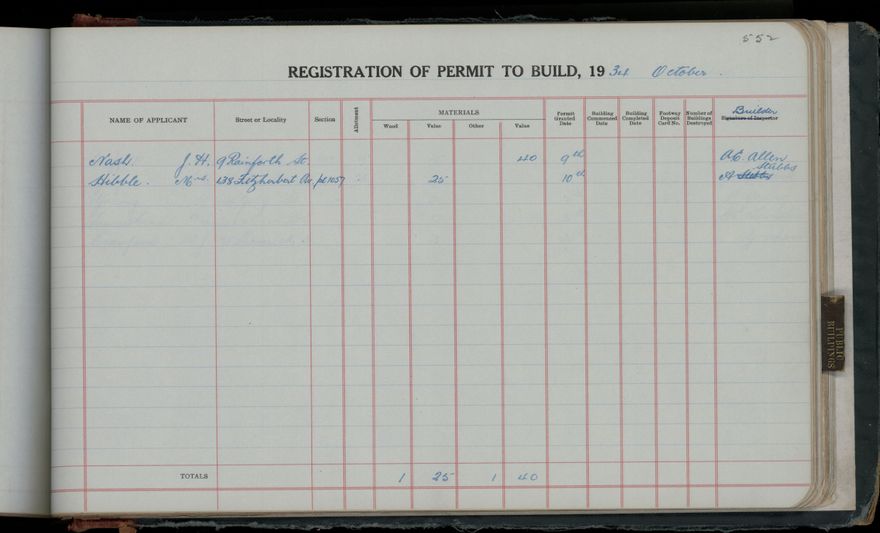 552
REGISTRATION OF PERMIT TO BUILD, 1934 October.
NAME OF APPLICANT Street or Locality Section Allotment MATERIALS Wood Value Other Value Permit Granted Date Building Commenced Date Building Completed Date Footway Deposit Card No. Number of Buildings Destroyed Builder Signature of Inspector
Nash. J. H. 9 Rainforth St. 40 9th A.E. Allen
Hibble. Mrs. 138 Fitzherbert Av. pt 1057 25 10th A Stubbs
TOTALS 1 25 1 40
PUBLIC
BUILDINGS